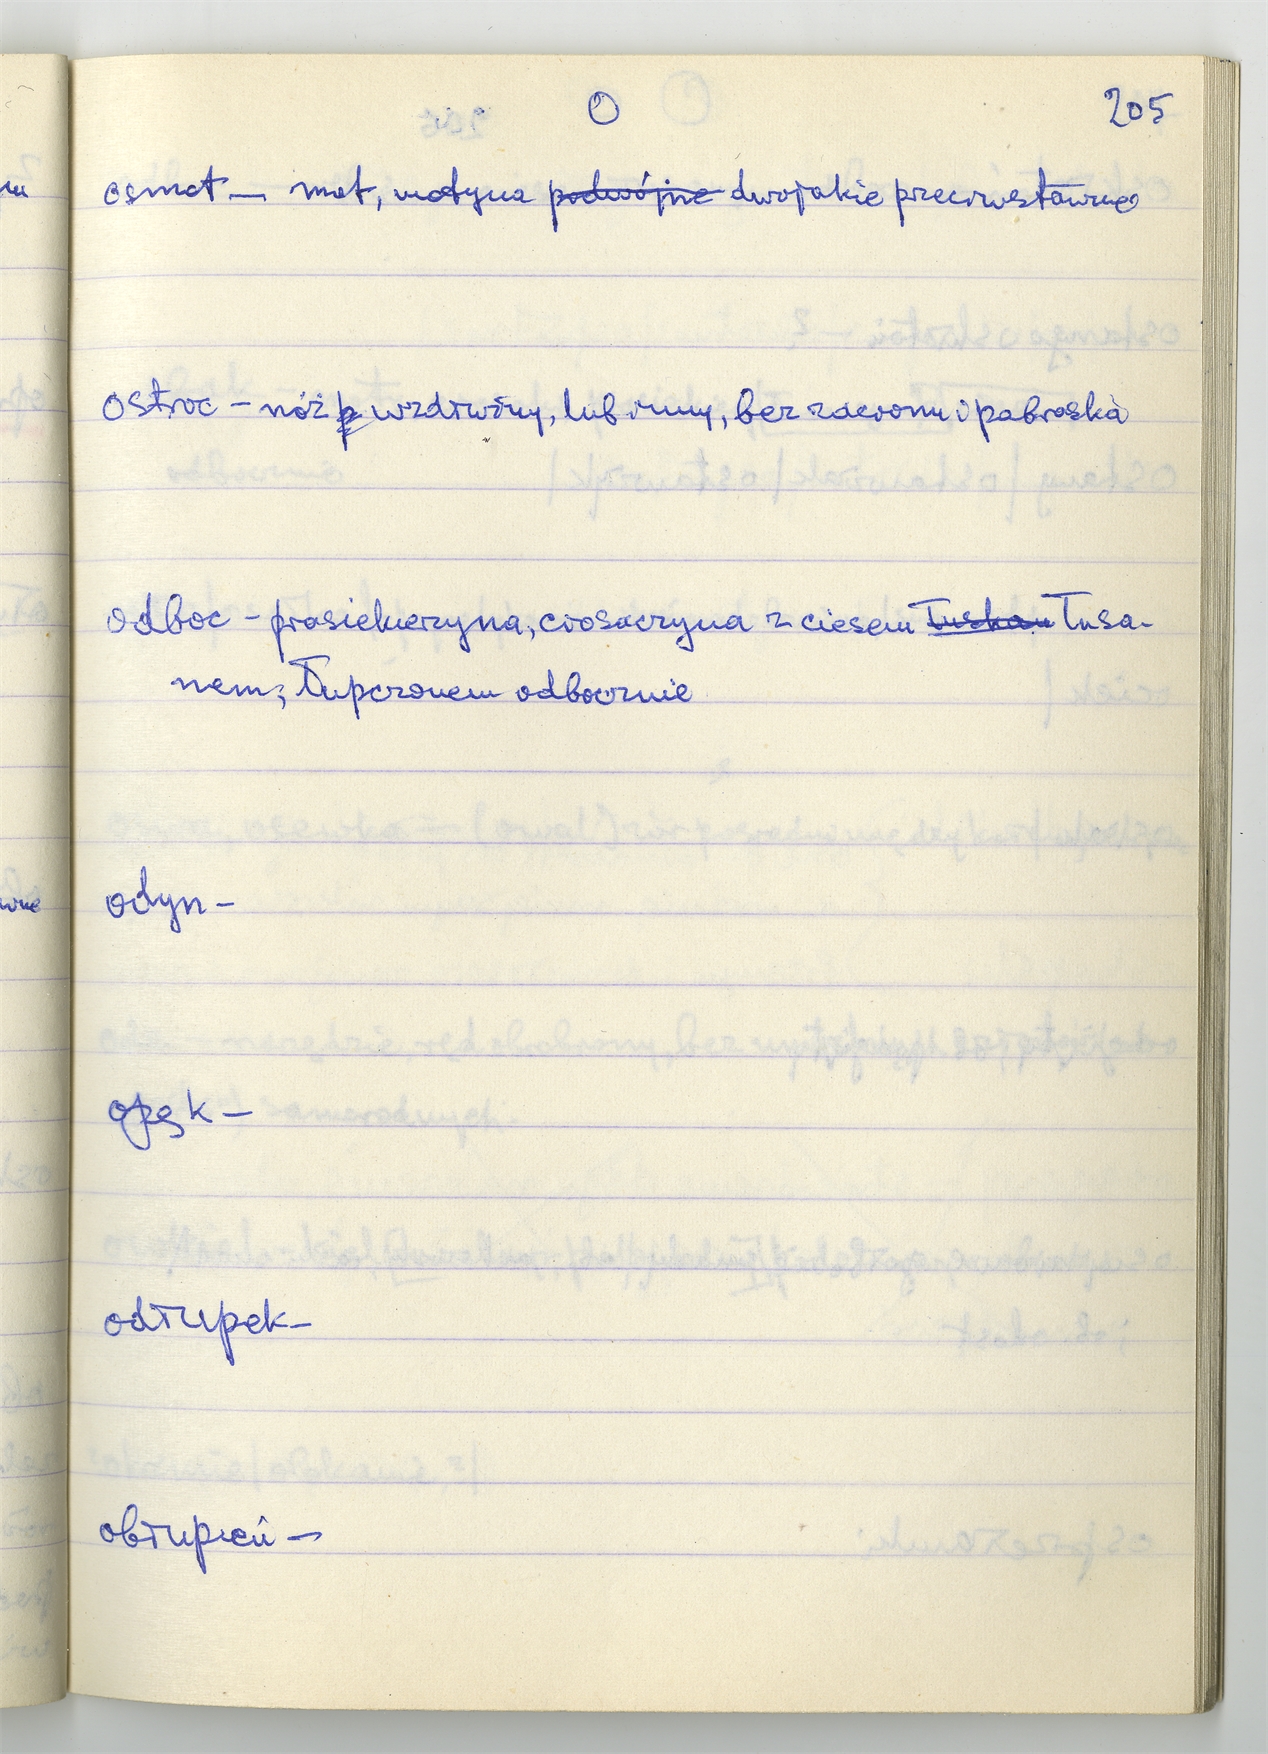 O 205
osmot — mot, motyna podwójne dwojakie przeciwstawne
ostroc – nóż wzdłużny, lub inny, bez zadziomu i pabroska
odboc – prasiekierzyna, ciosaczyna z ciesem łuskan łusa-
nem; łupczonem odbocznie
odyn –
opęk –
odłupek –
obłupień –